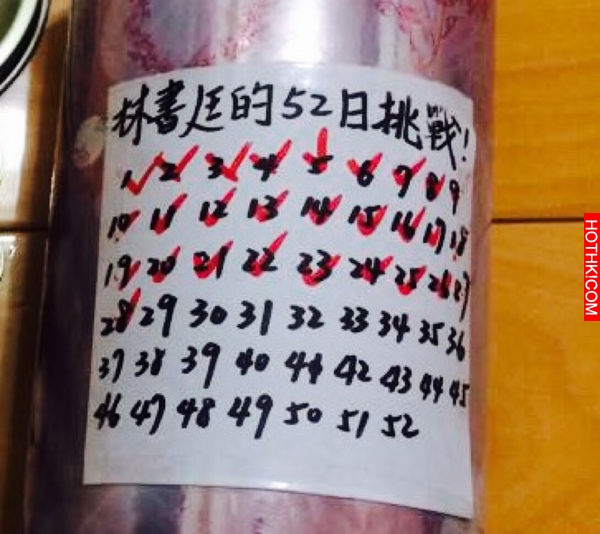 林書廷的52日挑戰!
1 2 3 4 5 6 7 8 9
10 11 12 13 14 15 16 17 18
19 20 21 22 23 24 25 26 27
28 29 30 31 32 33 34 35 36
37 38 39 40 41 42 43 44 45
46 47 48 49 50 51 52
HOTHKICOM